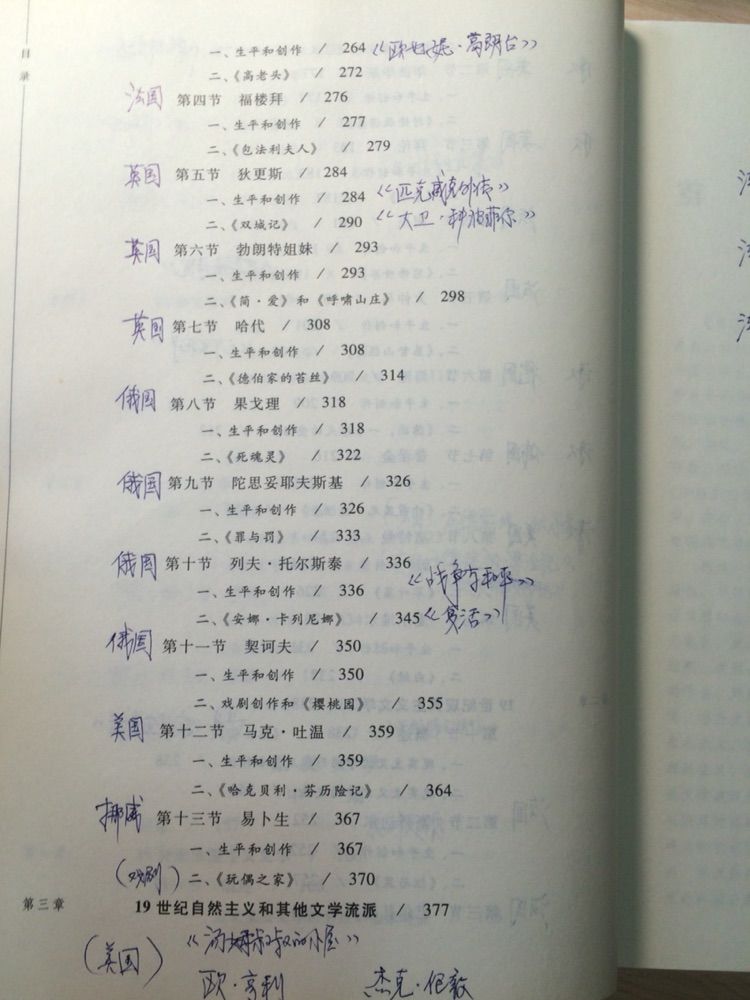 目录
一、生平和创作 / 264 《欧也妮·葛朗台》
二、《高老头》 / 272
法国 第四节 福楼拜 / 276
一、生平和创作 / 277
二、《包法利夫人》 / 279
英国 第五节 狄更斯 / 284
一、生平和创作 / 284 《匹克威克外传》
二、《双城记》 / 290 《大卫·科波菲尔》
英国 第六节 勃朗特姐妹 / 293
一、生平和创作 / 293
二、《简·爱》和《呼啸山庄》 / 298
英国 第七节 哈代 / 308
一、生平和创作 / 308
二、《德伯家的苔丝》 / 314
俄国 第八节 果戈理 / 318
一、生平和创作 / 318
二、《死魂灵》 / 322
俄国 第九节 陀思妥耶夫斯基 / 326
一、生平和创作 / 326
二、《罪与罚》 / 333
俄国 第十节 列夫·托尔斯泰 / 336
一、生平和创作 / 336 《战争与和平》
二、《安娜·卡列尼娜》 / 345 《复活》
俄国 第十一节 契诃夫 / 350
一、生平和创作 / 350
二、戏剧创作和《樱桃园》 / 355
美国 第十二节 马克·吐温 / 359
一、生平和创作 / 359
二、《哈克贝利·芬历险记》 / 364
挪威 第十三节 易卜生 / 367
一、生平和创作 / 367
(戏剧) 二、《玩偶之家》 / 370
第三章 19世纪自然主义和其他文学流派 / 377
(美国) 《汤姆叔叔的小屋》
欧·亨利 杰克·伦敦